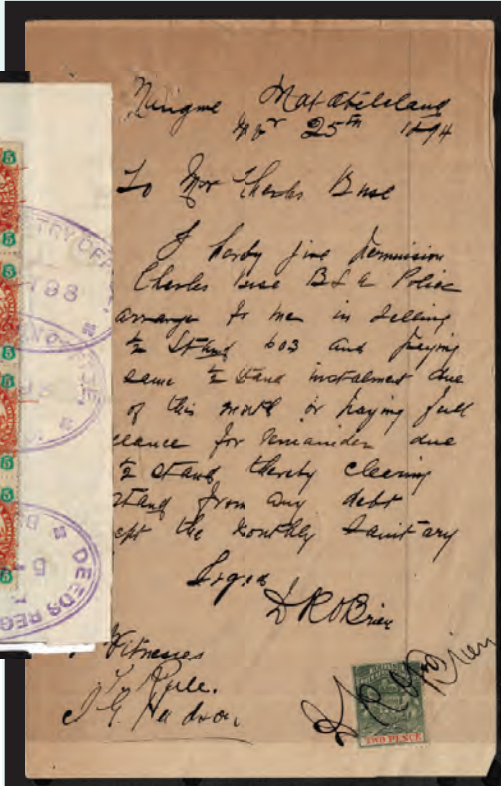 Matabeleland
25th 1894
To Mr Charles Buse
I horby give permission
Charles Buse B S A Police
arrange for me in selling
½ Stand 603 and paying
same ½ stand instalment due
of this month or paying full
eance for remainder due
½ stand thereby clearing
stand from any debt
ept the monthly Sanitary
Signed
D R O Brien
Witnesses
Rule.
J G Hudson
D R O Brien
TWO PENCE
5
5
5
5
5
5
5
TRY OFF
DEEDS REG